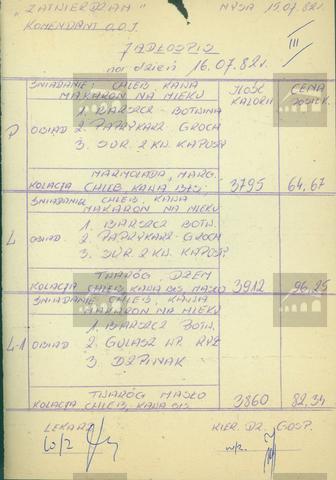 "ZATWIERDZAM" NYSA 15.07.82r.
KOMENDANT O.O.I.
III
JADŁOSPIS
na dzień 16.07.82r.
ŚNIADANIE: CHLEB, KAWA ILOŚĆ CENA
MAKARON NA MLEKU KALORII
1. BARSZCZ BOTWINA
P OBIAD 2. PAPRYKARZ GROCH
3. SUR. Z KW. KAPUSTY
MARMOLADA, MARG.
KOLACJA CHLEB, KAWA 3795 64,67
ŚNIADANIE CHLEB, KAWA
MAKARON NA MLEKU
1. BARSZCZ BOTW.
L OBIAD 2. PAPRYKARZ GROCH
3. SUR. Z KW. KAPUSTY
TWARÓG, DŻEM
KOLACJA CHLEB, KAWA MASŁO 3912 96,25
ŚNIADANIE CHLEB, KAWA
MAKARON NA MLEKU
1. BARSZCZ BOTW.
L-1 OBIAD 2. GULASZ RYŻ
3.
TWARÓG MASŁO
KOLACJA CHLEB, KAWA 3860 82,34
LEKARZ KIER. DZ. GOSP.